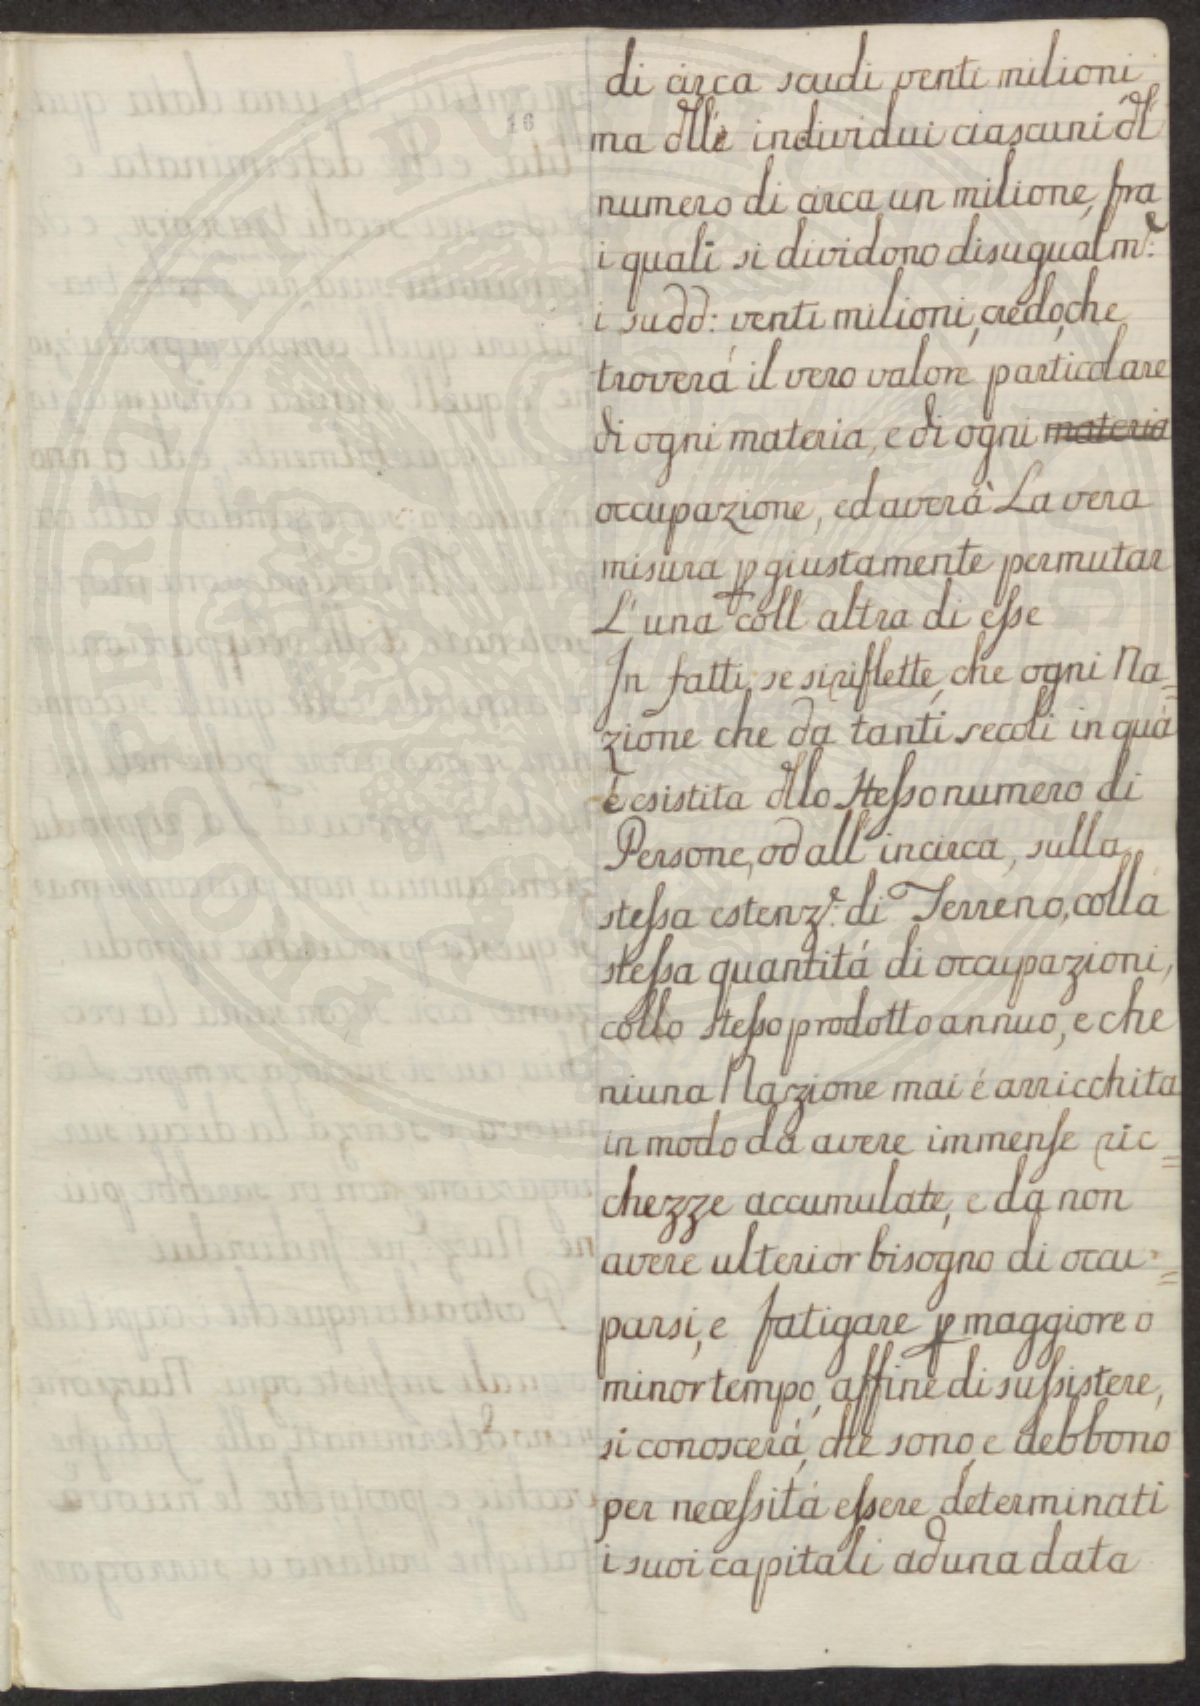 16
di circa scudi venti milioni
ma dll'i individui ciascuni dl
numero di circa un milione, fra
i quali si dividono disugualm.e
i sudd: venti milioni, credo, che
troverá il vero valore particolare
di ogni materia, e di ogni materia
occupazione, ed averá La vera
misura p giustamente permutar
L'una coll altra di esse
In fatti, se si riflette, che ogni Na=
zione che da tanti secoli in quá
é esistita dllo stesso numero di
Persone, od all' incirca, sulla
stessa estenz.e di Terreno, colla
stessa quantitá di occupazioni,
collo stesso prodotto annuo, e che
niuna Nazione mai é arricchita
in modo da avere immense ric=
chezze accumulate, e da non
avere ulterior bisogno di occu=
parsi, e fatigare p maggiore o
minor tempo, affine di sussistere,
si conoscerá, che sono, e debbono
per necessitá essere determinati
i suoi capitali ad una data